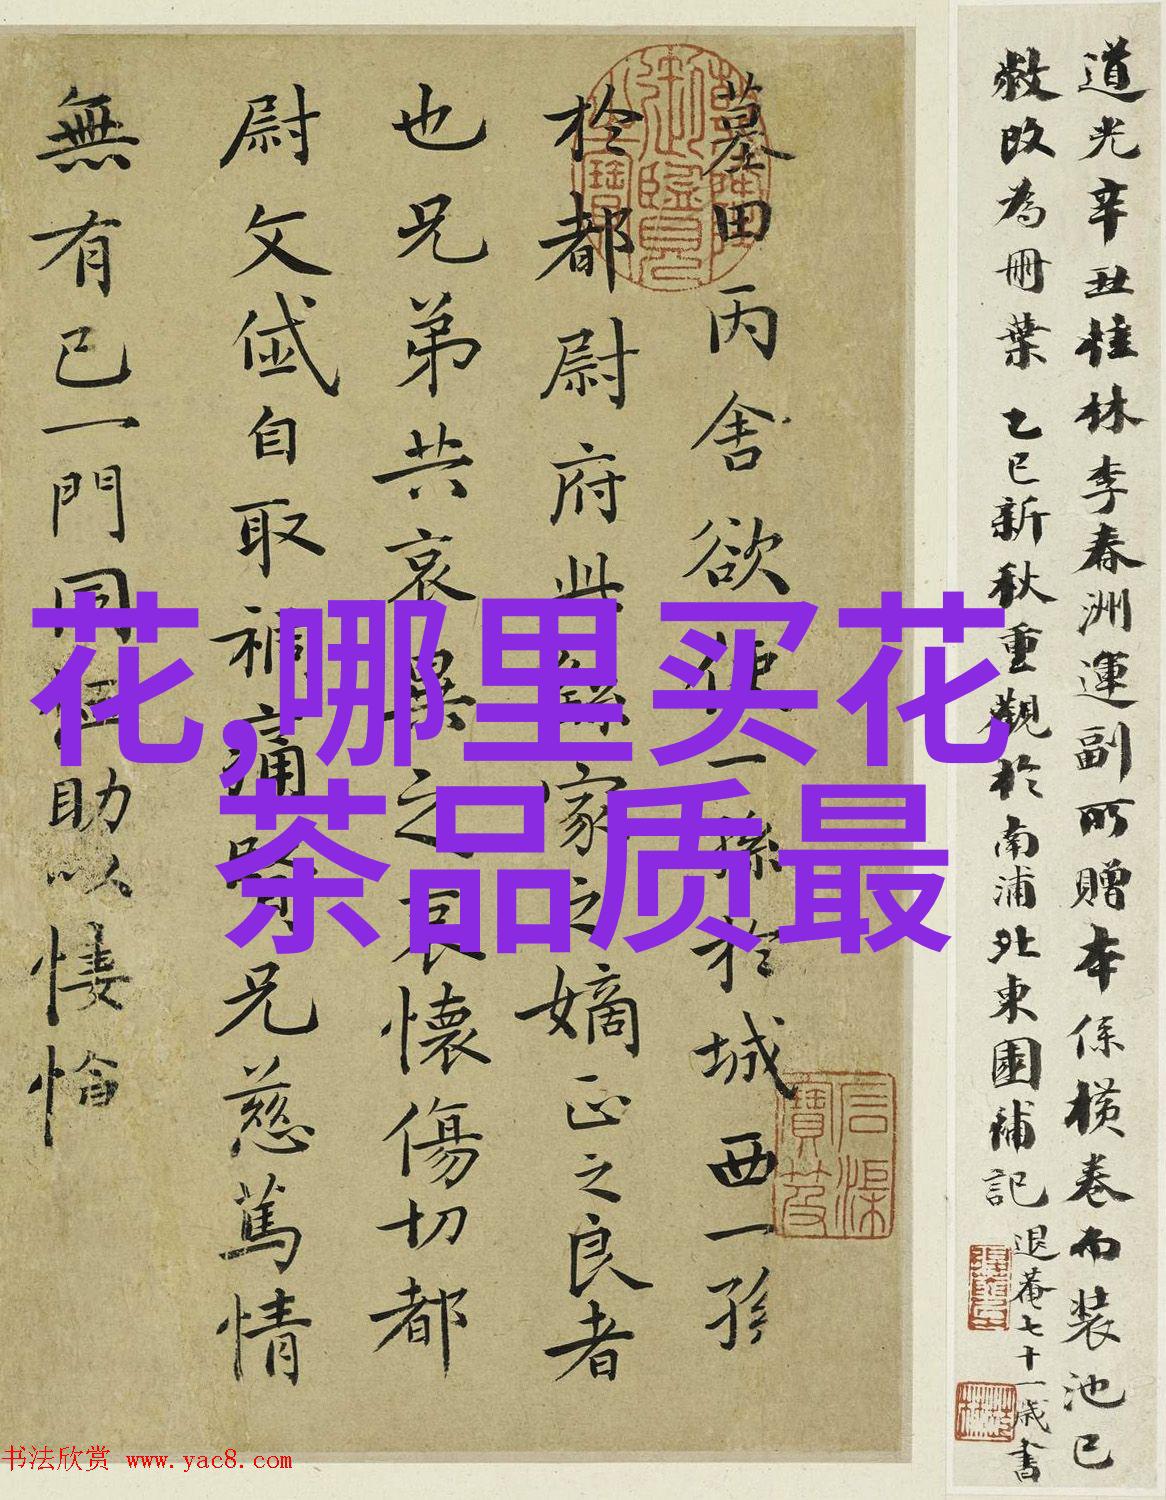 道光辛丑桂林李春洲運副所贈本係橫卷而裝池已
敝改為冊葉 乙巳新秋重觀於南浦北東園補記
退菴七十一歲書
墓田丙舍欲使一孫於城西一孫
於都尉府此 家之嫡正之良者
也兄弟共哀異之哀懷傷切都
尉文岱自取禍痛 兄慈篤情
無有已一門同 助以悽愴
花,哪里买花
茶品质最
书法欣赏 www.yac8.com